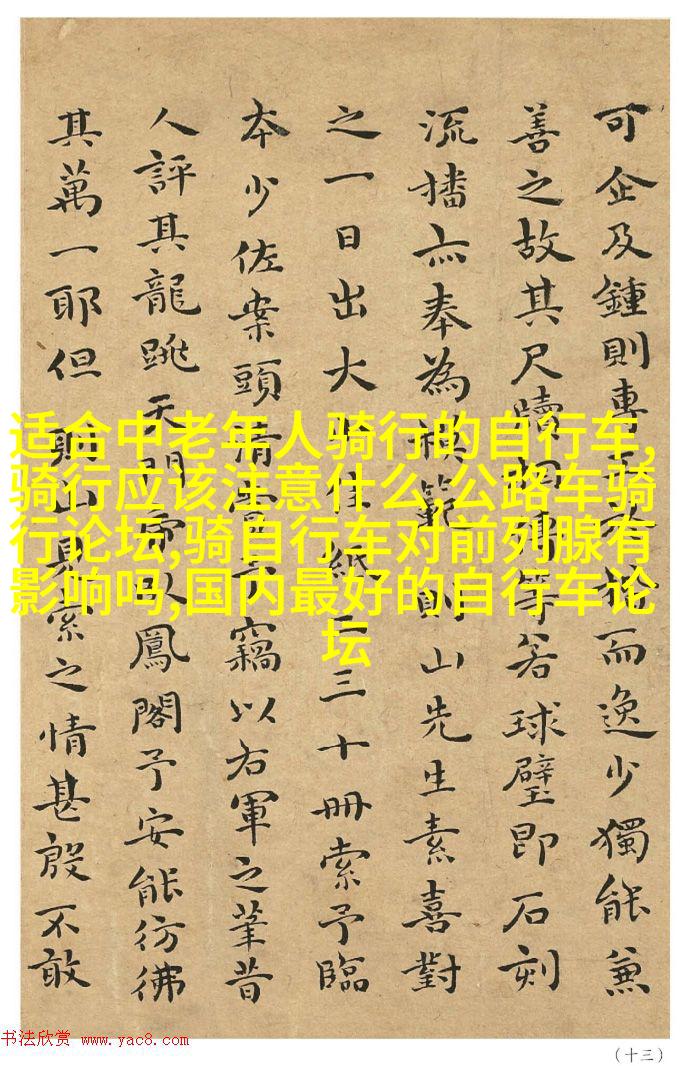 可企及鍾則專而逸少獨能兼
善之故其尺牘等若球璧即石刻
流播亦奉為模範則山先生素喜對
之一日出大佳紙二三十冊索予臨
本少佐案頭清竊以右軍之筆昔
人評其龍跳天門虎臥鳳閣予安能彷彿
其萬一耶但則山見索之情甚殷不敢
适合中老年人骑行的自行车,
骑行应该注意什么,公路车骑
行论坛,骑自行车对前列腺有
影响吗,国内最好的自行车论
坛
书法欣赏 www.yac8.com
（十三）